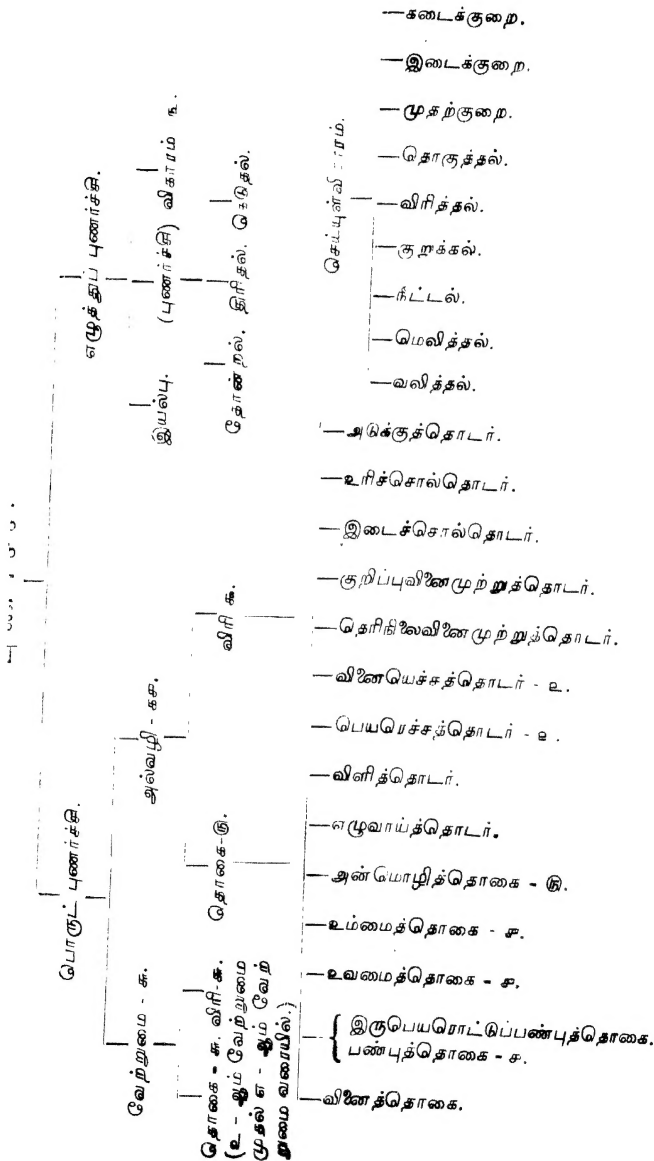 எழுத்துப் புணர்ச்சி.
இயல்பு.
(புணர்ச்சி) விகாரம் ௩.
தோன்றல்.
திரிதல்.
கெடுதல்.
கடைக்குறை.
இடைக்குறை.
முதற்குறை.
தொகுத்தல்.
விரித்தல்.
குறுக்கல்.
நீட்டல்.
மெலித்தல்.
வலித்தல்.
பொருட் புணர்ச்சி.
அல்வழி - ௧௪.
விரி ௯.
தொகை-௫.
அடுக்குத்தொடர்.
உரிச்சொல்தொடர்.
இடைச்சொல்தொடர்.
குறிப்புவினைமுற்றுத்தொடர்.
தெரிநிலைவினைமுற்றுத்தொடர்.
வினையெச்சத்தொடர் - ௨.
பெயரெச்சத்தொடர் - ௨.
விளித்தொடர்.
எழுவாய்த்தொடர்.
அன்மொழித்தொகை - ௫.
உம்மைத்தொகை - ௪.
உவமைத்தொகை - ௪.
இருபெயரொட்டுப்பண்புத்தொகை.
பண்புத்தொகை - ௪.
வினைத்தொகை.
வேற்றுமை - ௬.
தொகை - ௬. விரி-௬.
(௨ - ஆம் வேற்றுமை
முதல் ௭ - ஆம் வேற்
றுமை வரையில்.)